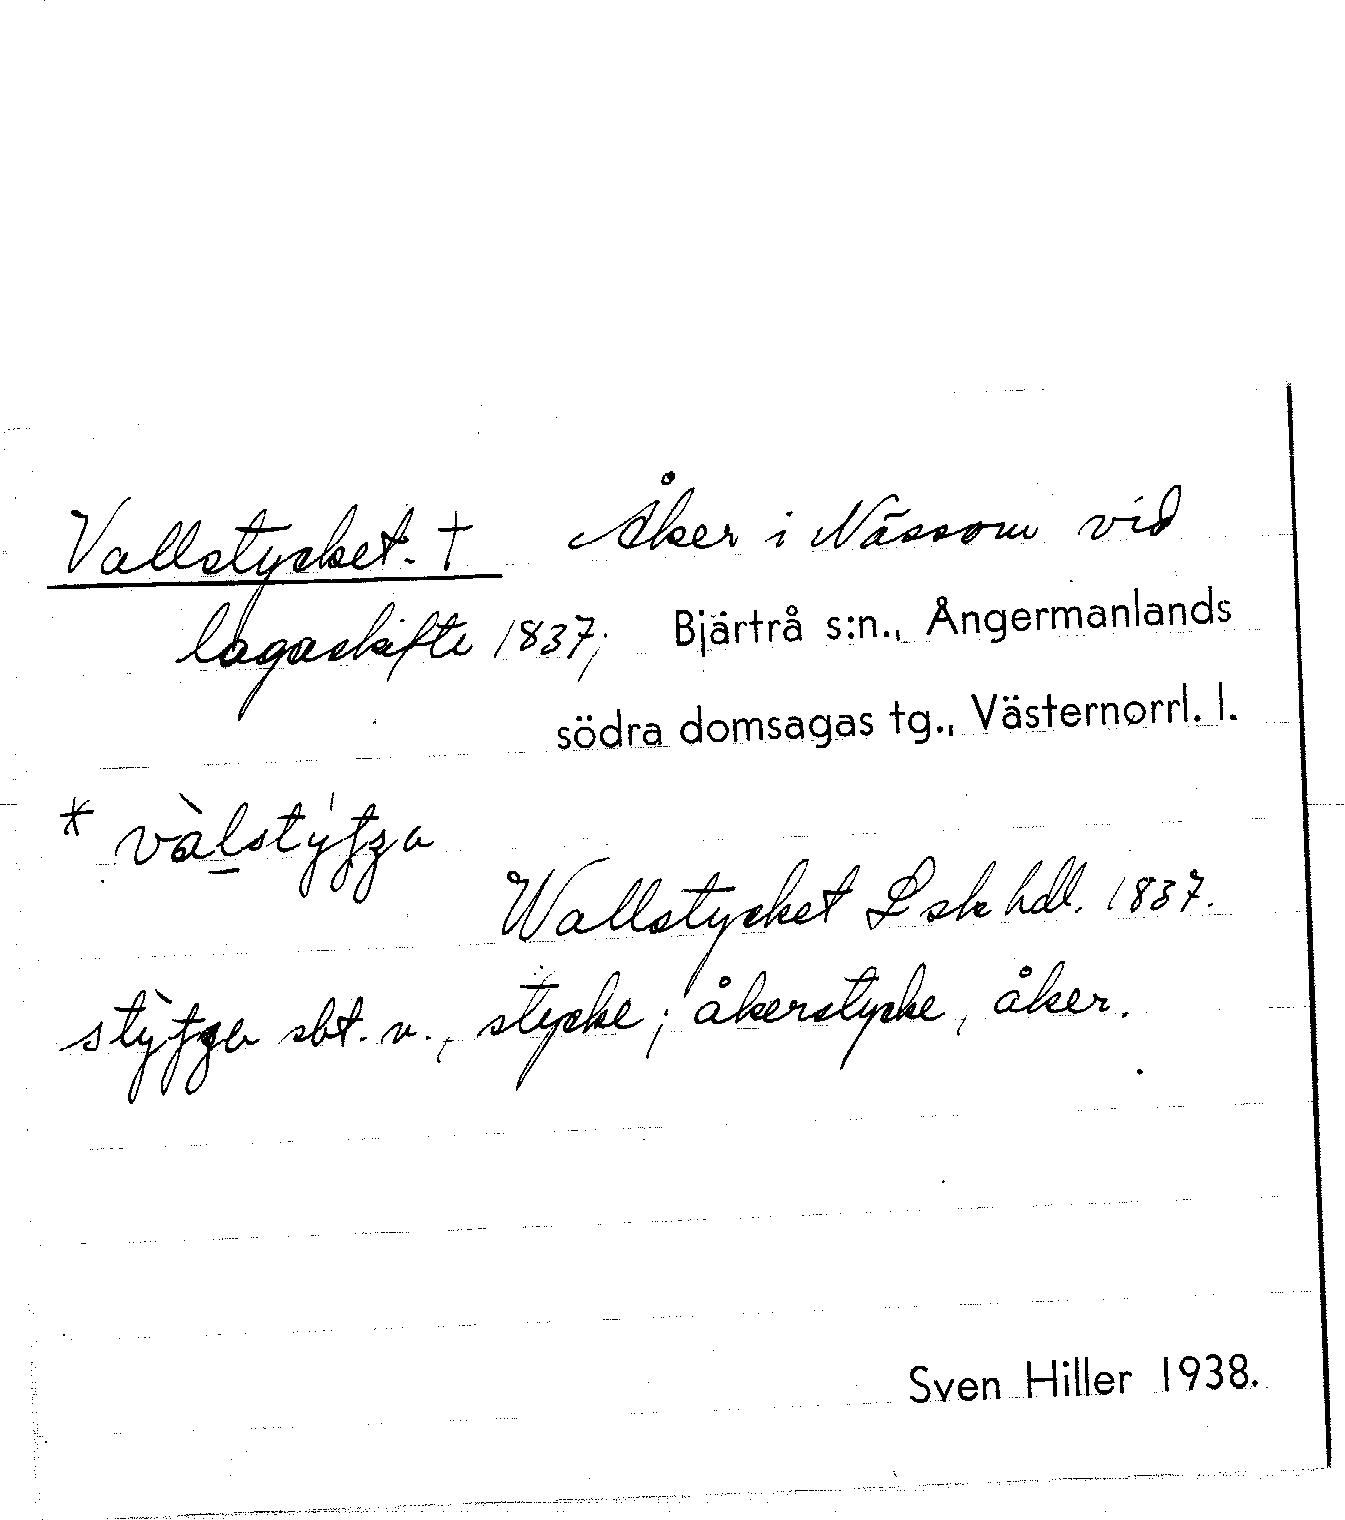 Vallstycket. † Åker i Nässom vid
lagaskifte 1837; Bjärtrå s:n., Ångermanlands
södra domsagas tg., Västernorrl. l.
Wallstycket Lsk hdl. 1837.
sbt. n., stycke; åkerstycke, åker.
Sven Hiller 1938.